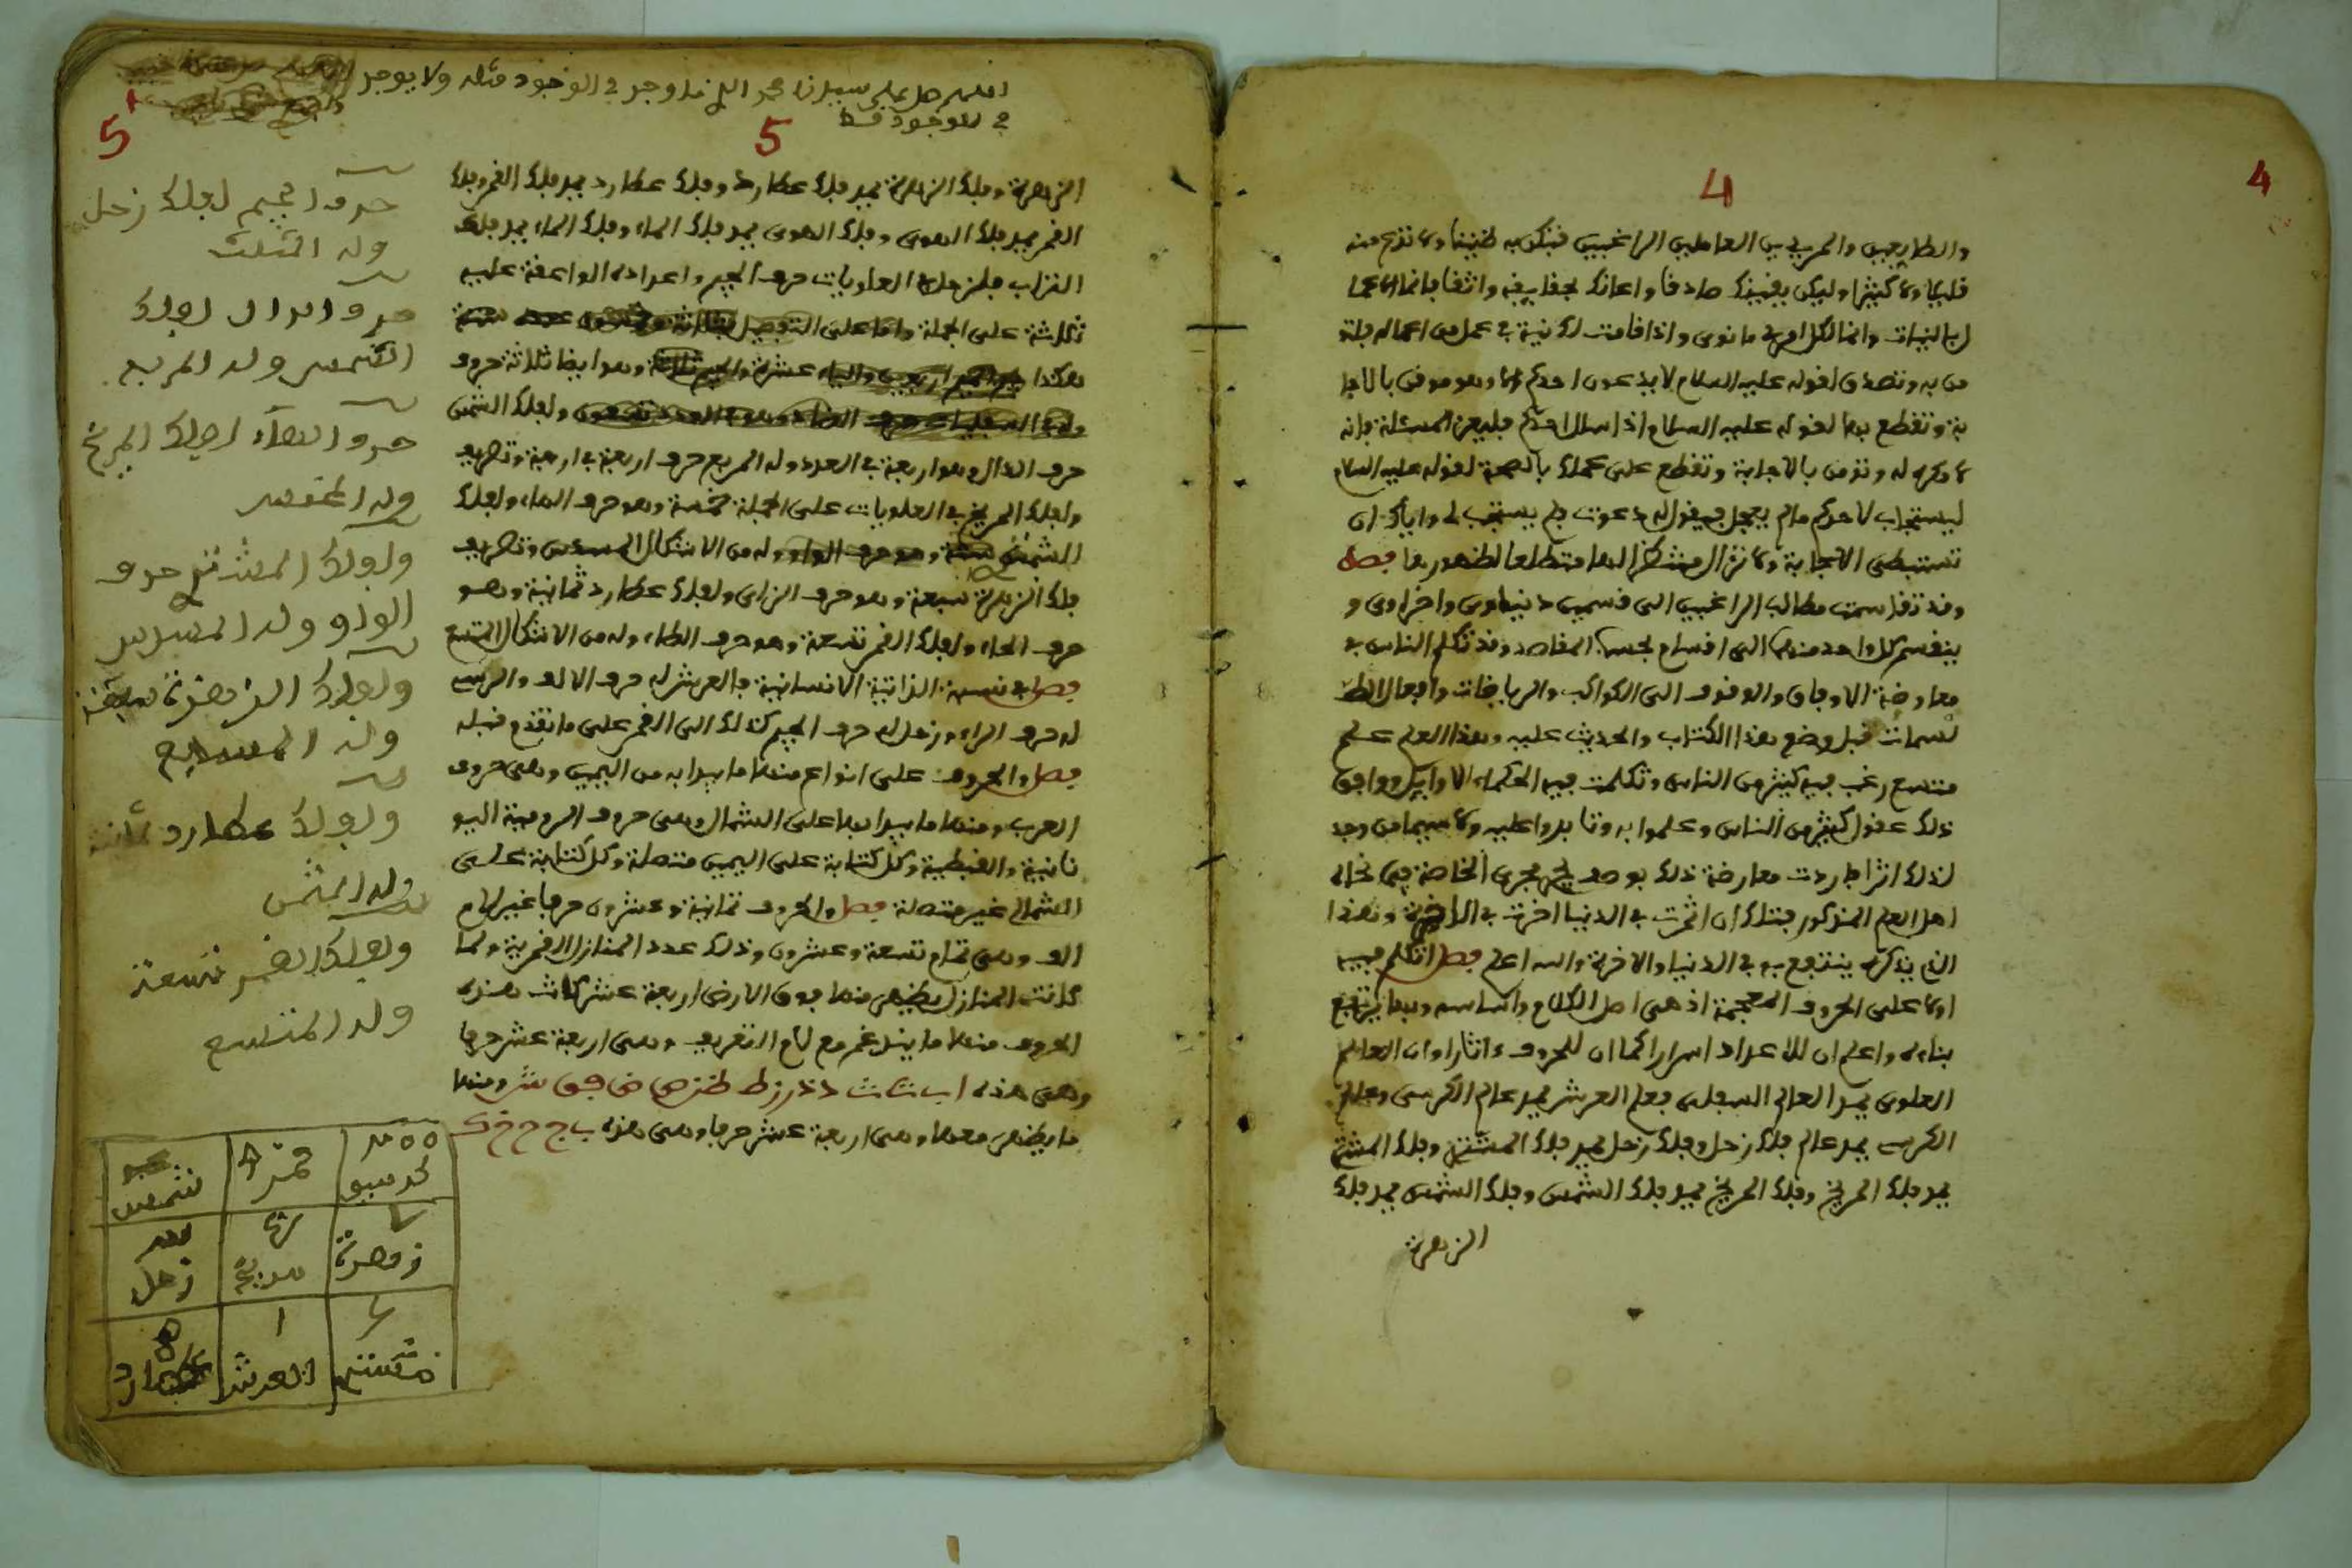 4
4
والطايعين والمريدين العاملين الراغبين فيكن به ظنينا ولا تذع منه
قليلا ولا كثيرا وليكن يقينك صادقا واعانك بحقايقه واثقا فانما الاعما
ل بالنيات وانما لكل امرئ ما نوى واذا قامت لك نية في عمل من اعماله فلتو
من به وتصدق لقوله عليه السلام لا يدعون احدكم الا وهو موقن بالاجا
بة وتقطع بها لقوله عليه السلام اذا سال احدكم فليعزم المسئلة فانه
لا مكره له وتومن بالاجابة وتقطع على عملك بالصحة لقوله عليه السلام
ليستجاب لاحدكم مالم يعجل فيقول دعوت فلم يستجب لي واياك ان
تستبطى الاجابة ولا تزال منتظرا لها متطلعا لظهورها فصل
وقد تقاسمت مطالب الراغبين الى قسمين دنياوى واخراوى و
ينقسم كل واحد منهما الى اقسام بحسب المقاصد وقد تكلم الناس في
معارضة الاوفاق والوقوف الى الكواكب والرياضات وافعال الطـ
لسمات قبل وضع هذا الكتاب والحديث عليه وهذا العلم علم
متسع رغب فيه كثير من الناس وتكلمت فيه الحكماء الاوايل ووافق
ذلك عقول كثير من الناس وعلموا به وثابروا عليه ولا سيما من وجد
لذلك اثرا فاردت معارضة ذلك بوصف يجرى مجرى الخاصة
اهل العلم المذكور فتلك ان اثمرت في الدنيا اخرت في الاخرة وهذا
الذى يذكره ينتفع به في الدنيا والاخرة والله اعلم فصل اتكلم فيه
اولا على الحروف المعجمة اذ هى اصل الكلام واساسه وبها يرتفع
بناءه واعلم ان للاعداد اسرارا كما ان للحروف ءاثارا وان العالم
العلوى يمد العالم السفلى فعلم العرش يمد عالم الكرسى وعالم
الكرسى يمد عالم فلك زحل وفلك زحل يمد فلك المشترى وفلك المشترى
يمد فلك المريخ وفلك المريخ يمد فلك الشمس وفلك الشمس يمد فلك
الزهرة
اللهم صل على سيدنا محمد الذى ما وجد في الوجود مثله ولا يوجد
في الوجود قط
5
5
الزهرة وفلك الزهرة يمد فلك عطارد وفلك عطارد يمد فلك القمر وفلك
القمر يمد فلك الهوى وفلك الهوى يمد فلك الماء وفلك الماء يمد فلك
التراب فلزحل في العلويات حرف الجيم واعداده الواقعة عليه
ثلاثة على الجملة واما على التفصيل
هكذا وهو ايضا ثلاثة حروف
ولفلك الشمس
حرف الدال وهو اربعة في العدد وله المربع حرف اربعة في اربعة وتصريف
ولفلك المريخ في العلويات على الجملة خمسة وهو حرف الهاء ولفلك
وله من الاشكال المسدس وتصريف
فلك الزهرة سبعة وهو حرف الزاى ولفلك عطارد ثمانية وهو
حرف الحاء ولفلك القمر تسعة وهو حرف الطاء وله من الاشكال المتسع
فصل في نسبة الذاتية الانسانية فالعرش له حرف الالف والكرسى
له حرف الباء وزحل له حرف الجيم كذلك الى القمر على ما تقدم قبله
فصل والحروف على انواع منها ما يبدا به من اليمين وهى حروف
العرب ومنها ما يبدا بها على الشمال وهى حروف الرومية اليو
نانية والقبطية وكل كتابة على اليمين متصلة وكل كتابة على
الشمال غير متصلة فصل والحروف ثمانية وعشرون حرفا غير لام
الف وهى تمام تسعة وعشرون وذلك عدد المنازل القمرية ولما
كانت المنازل يظهر منها فوق الارض اربعة عشر كانت هذه
الحروف منها ما يندغم مع لام التعريف وهى اربعة عشر حرفا
وهى هذه ا ت ث د ذ ر ز ط ظ ن ص ض س ش ومنها
ما يظهر معها وهى اربعة عشر حرفا وهى هذه ب ج ح خ ك
حرف الجيم لفلك زحل
وله المثلث
حرف الدال لفلك
الشمس وله المربع
حرف الهاء لفلك المريخ
وله المخمس
ولفلك المشترى حرف
الواو وله المسدس
ولفلك الزهرة سبعة
وله المسابع
ولفلك عطارد ثمانية
وله المثمن
ولفلك القمر تسعة
وله المتسع
كرسى قمر شمس
زهرة مريخ زحل
مشترى العرش عطارد